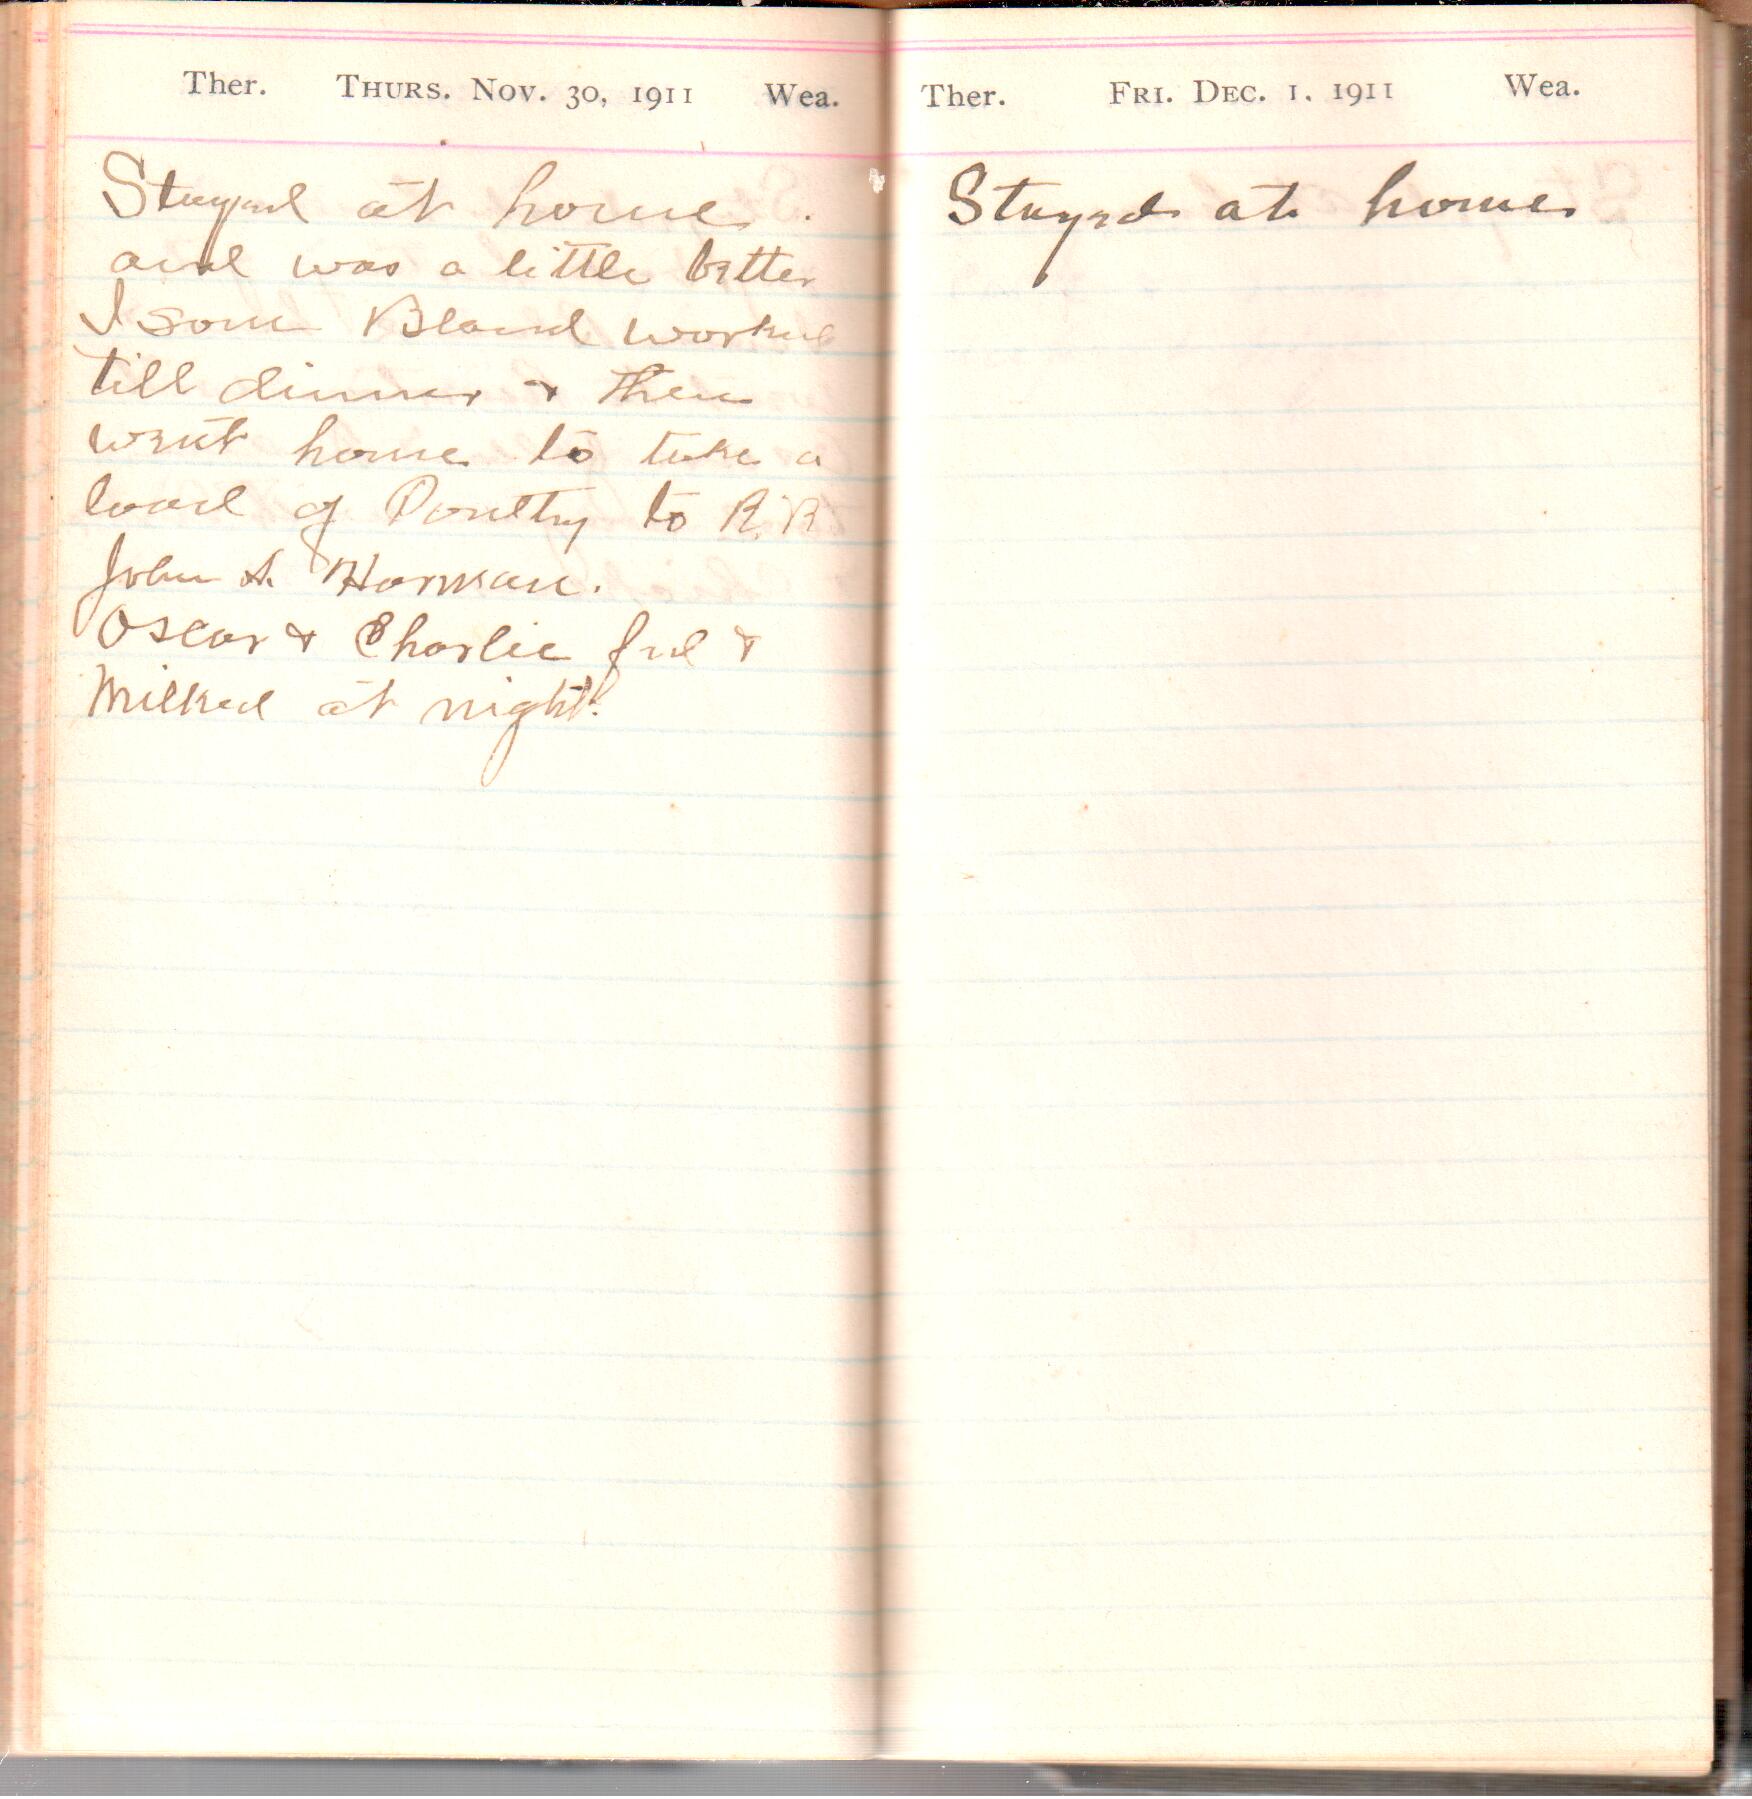 Ther. THURS. NOV. 30, 1911 Wea.
Stayed at home.
and was a little better
Bland worked
till dinner & then
went home to take a
load of Poultry to R.R
John S. Harman.
Oscar & Charlie fed &
Milked at night.
Ther. FRI. DEC. 1. 1911 Wea.
Stayed at home